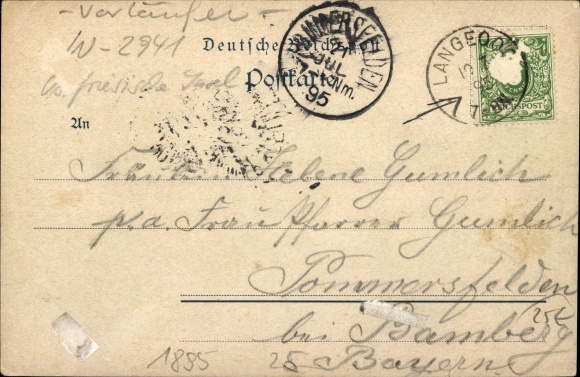 - Vorläufer -
W-2941
friesische Insel
Deutsche Reichspost
Postkarte
An
POMMERSFELDEN
JUL
95
Nm.
LANGEOOG
REICHSPOST
Fräulein Helene Gumlich
p.a. Frau Pfarrer Gumlich
Pommersfelden
bei Bamberg
Bayern.
1895
25
25,-